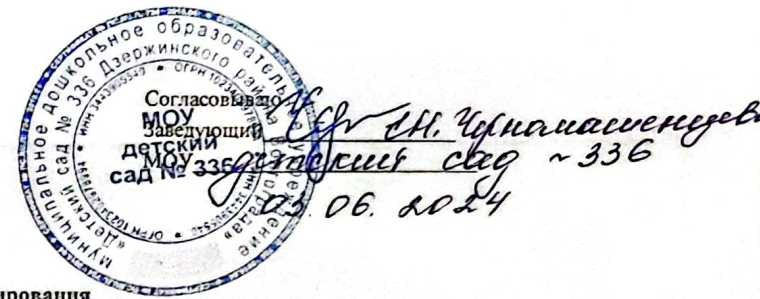 муниципальное дошкольное образовательное учреждение
«Детский сад № 336 Дзержинского района Волгограда»
ИНН 3443905540
МОУ
детский
сад № 336
Согласовываю
Заведующий С.Н. Черномашенцева
МОУ детский сад ~ 336
03. 06. 2024
ирования